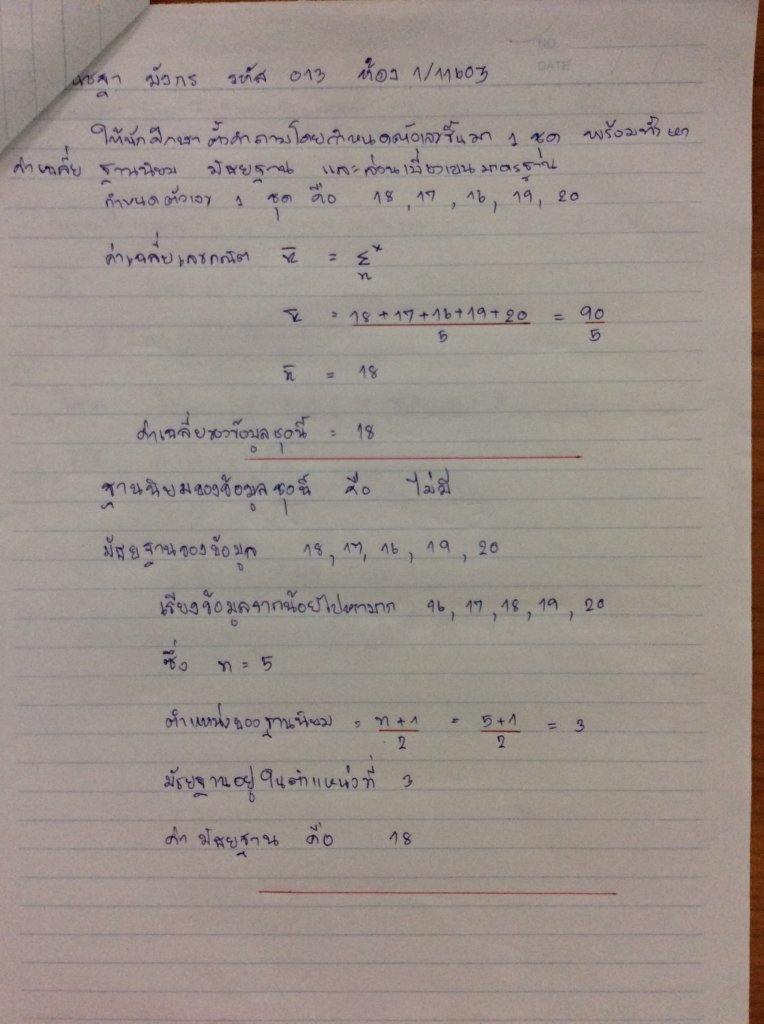 NO.
DATE
มังกร รหัส 013 ห้อง 1/11603
ให้นักศึกษาตั้งคำถามโดยกำหนดตัวเลขขึ้นมา 1 ชุด พร้อมทั้งหา
ค่าเฉลี่ย ฐานนิยม มัธยฐาน และส่วนเบี่ยงเบนมาตรฐาน
กำหนดตัวเลข 1 ชุด คือ 18 , 17 , 16 , 19 , 20
ค่าเฉลี่ยเลขคณิต x̄ = Σx/n
x̄ = 18+17+16+19+20/5 = 90/5
x̄ = 18
ค่าเฉลี่ยของข้อมูลชุดนี้ = 18
ฐานนิยมของข้อมูลชุดนี้ คือ ไม่มี
มัธยฐานของข้อมูล 18 , 17 , 16 , 19 , 20
เรียงข้อมูลจากน้อยไปหามาก 16 , 17 , 18 , 19 , 20
ซึ่ง n = 5
ตำแหน่งของฐานนิยม = n+1/2 = 5+1/2 = 3
มัธยฐานอยู่ในตำแหน่งที่ 3
ค่ามัธยฐาน คือ 18